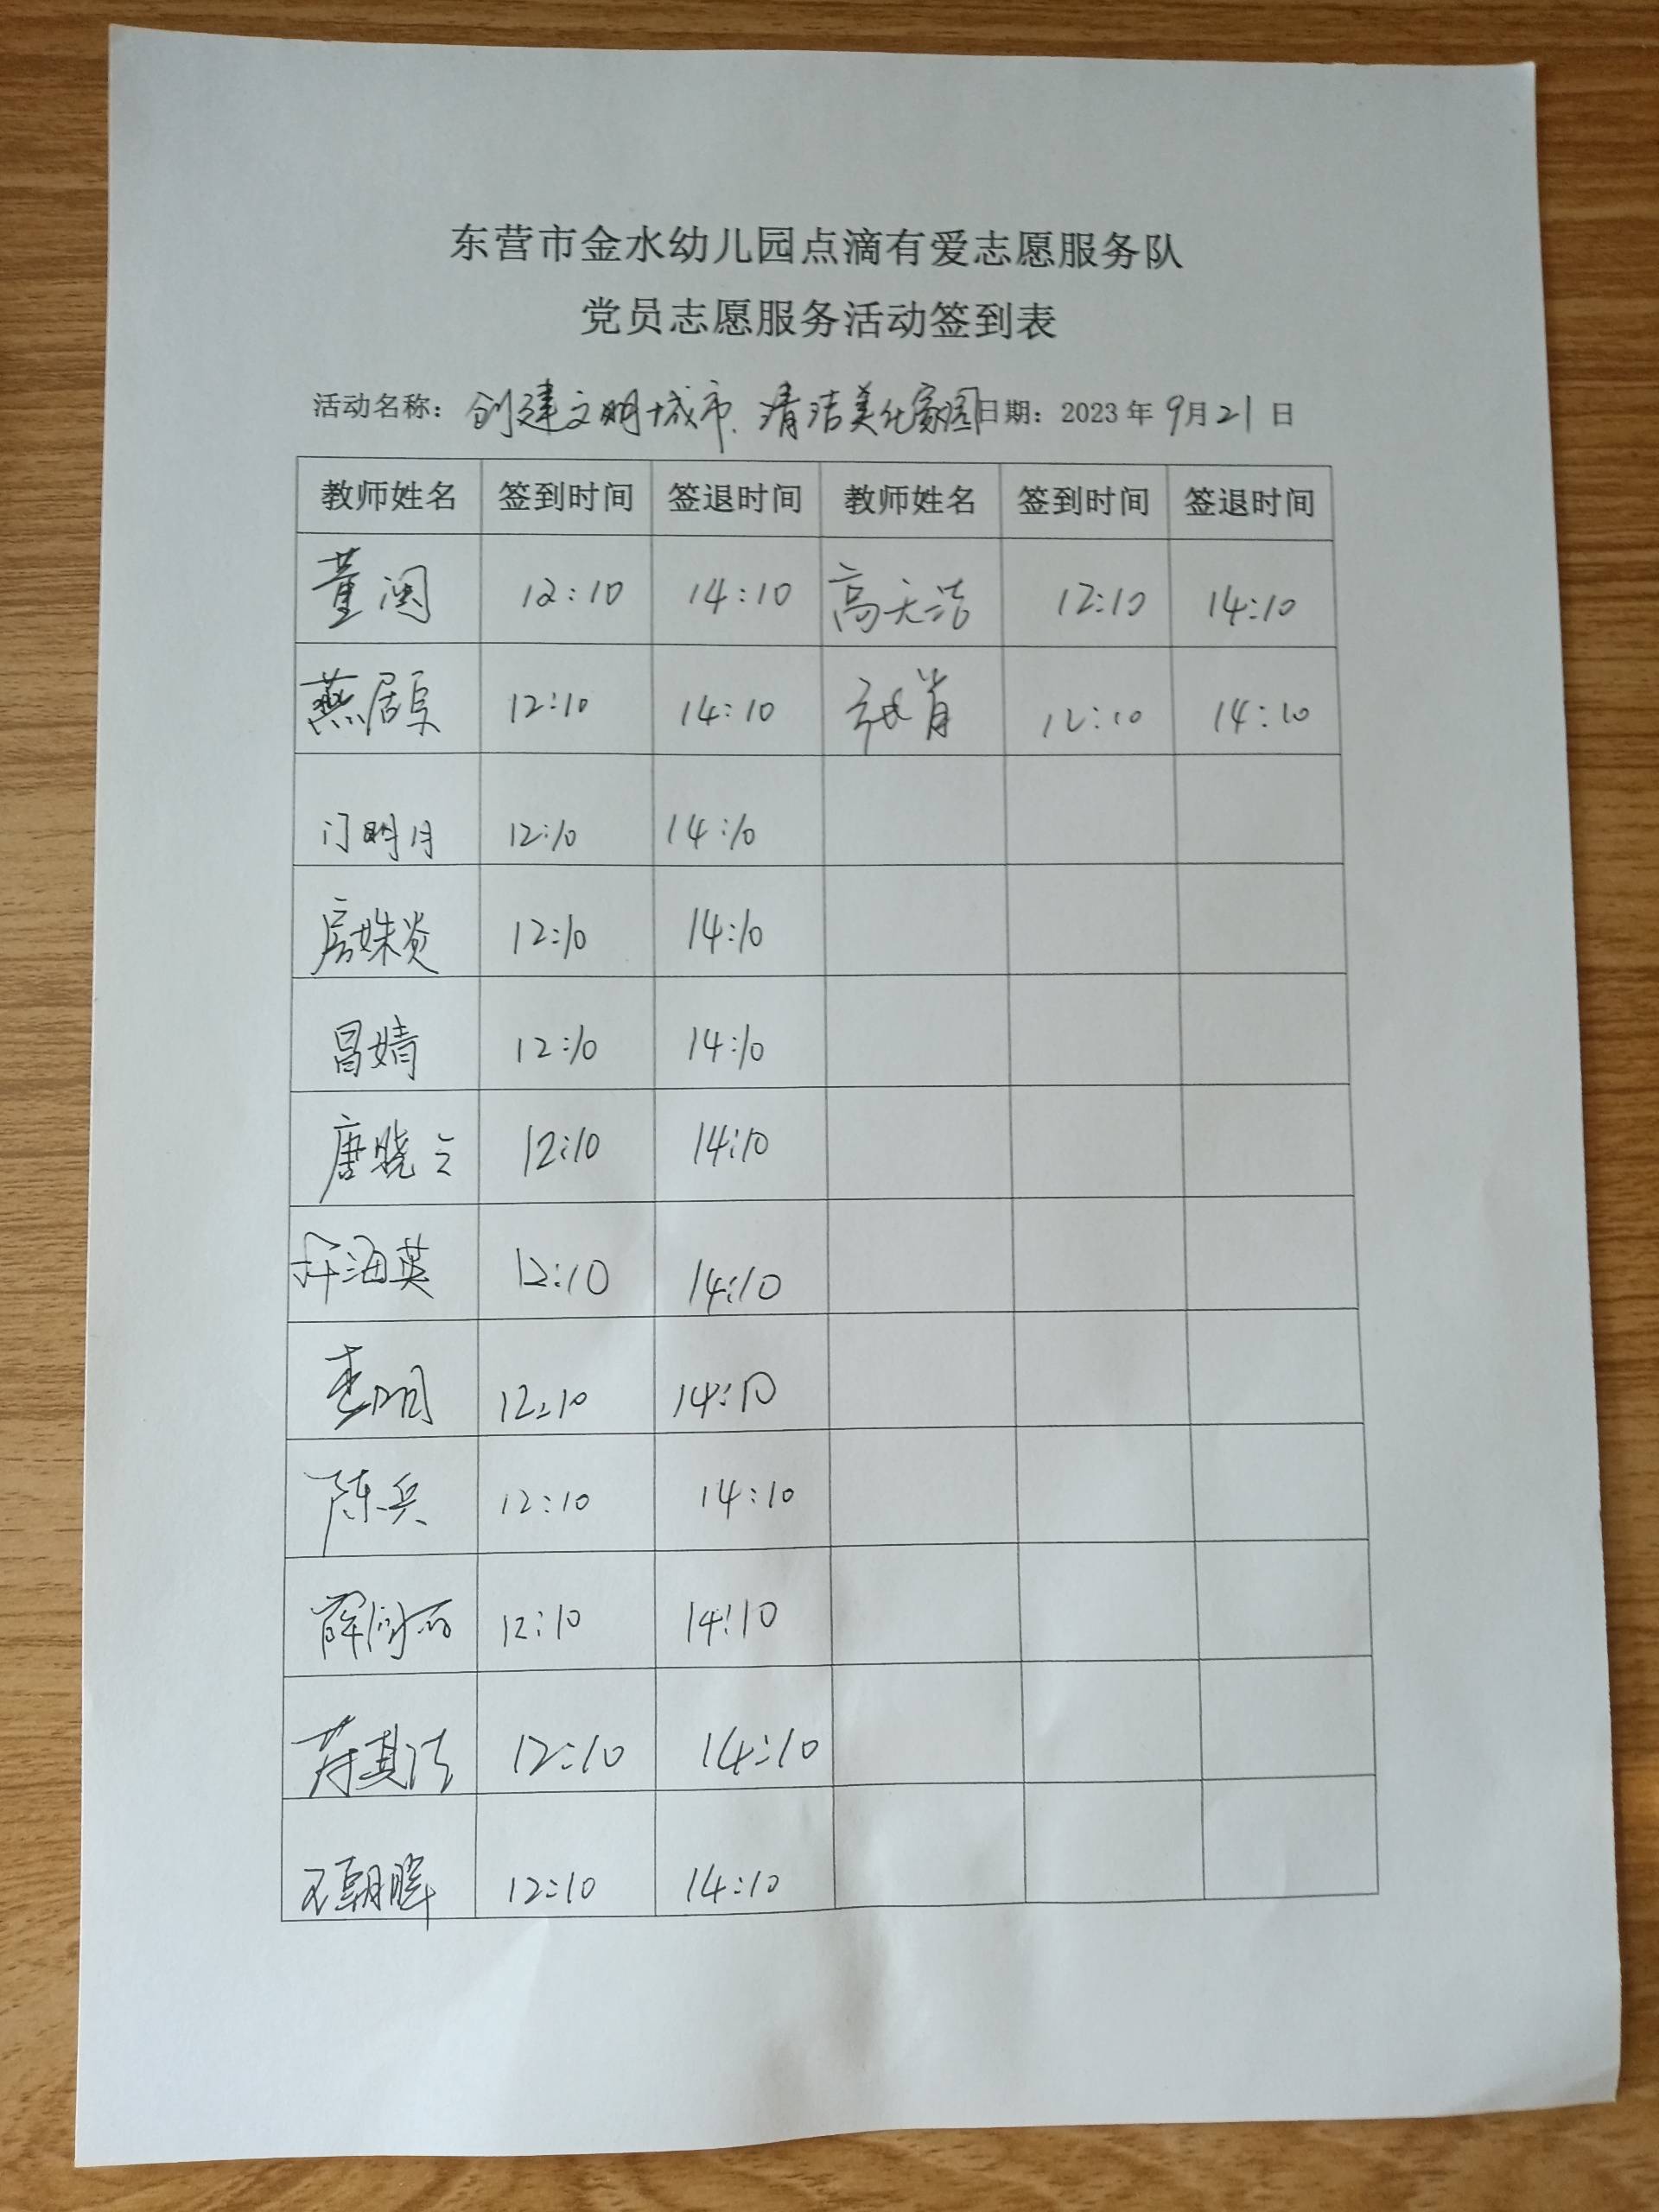 东营市金水幼儿园点滴有爱志愿服务队
党员志愿服务活动签到表
活动名称：创建文明城市、清洁美化家园 日期：2023年9月21日
教师姓名 签到时间 签退时间 教师姓名 签到时间 签退时间
董闽 12:10 14:10 高天洁 12:10 14:10
燕居 12:10 14:10 张肖 12:10 14:10
门明月 12:10 14:10
房姝 12:10 14:10
昌婧 12:10 14:10
唐晓云 12:10 14:10
海英 12:10 14:10
12:10 14:10
陈兵 12:10 14:10
薛 12:10 14:10
其 12:10 14:10
王朝晖 12:10 14:10